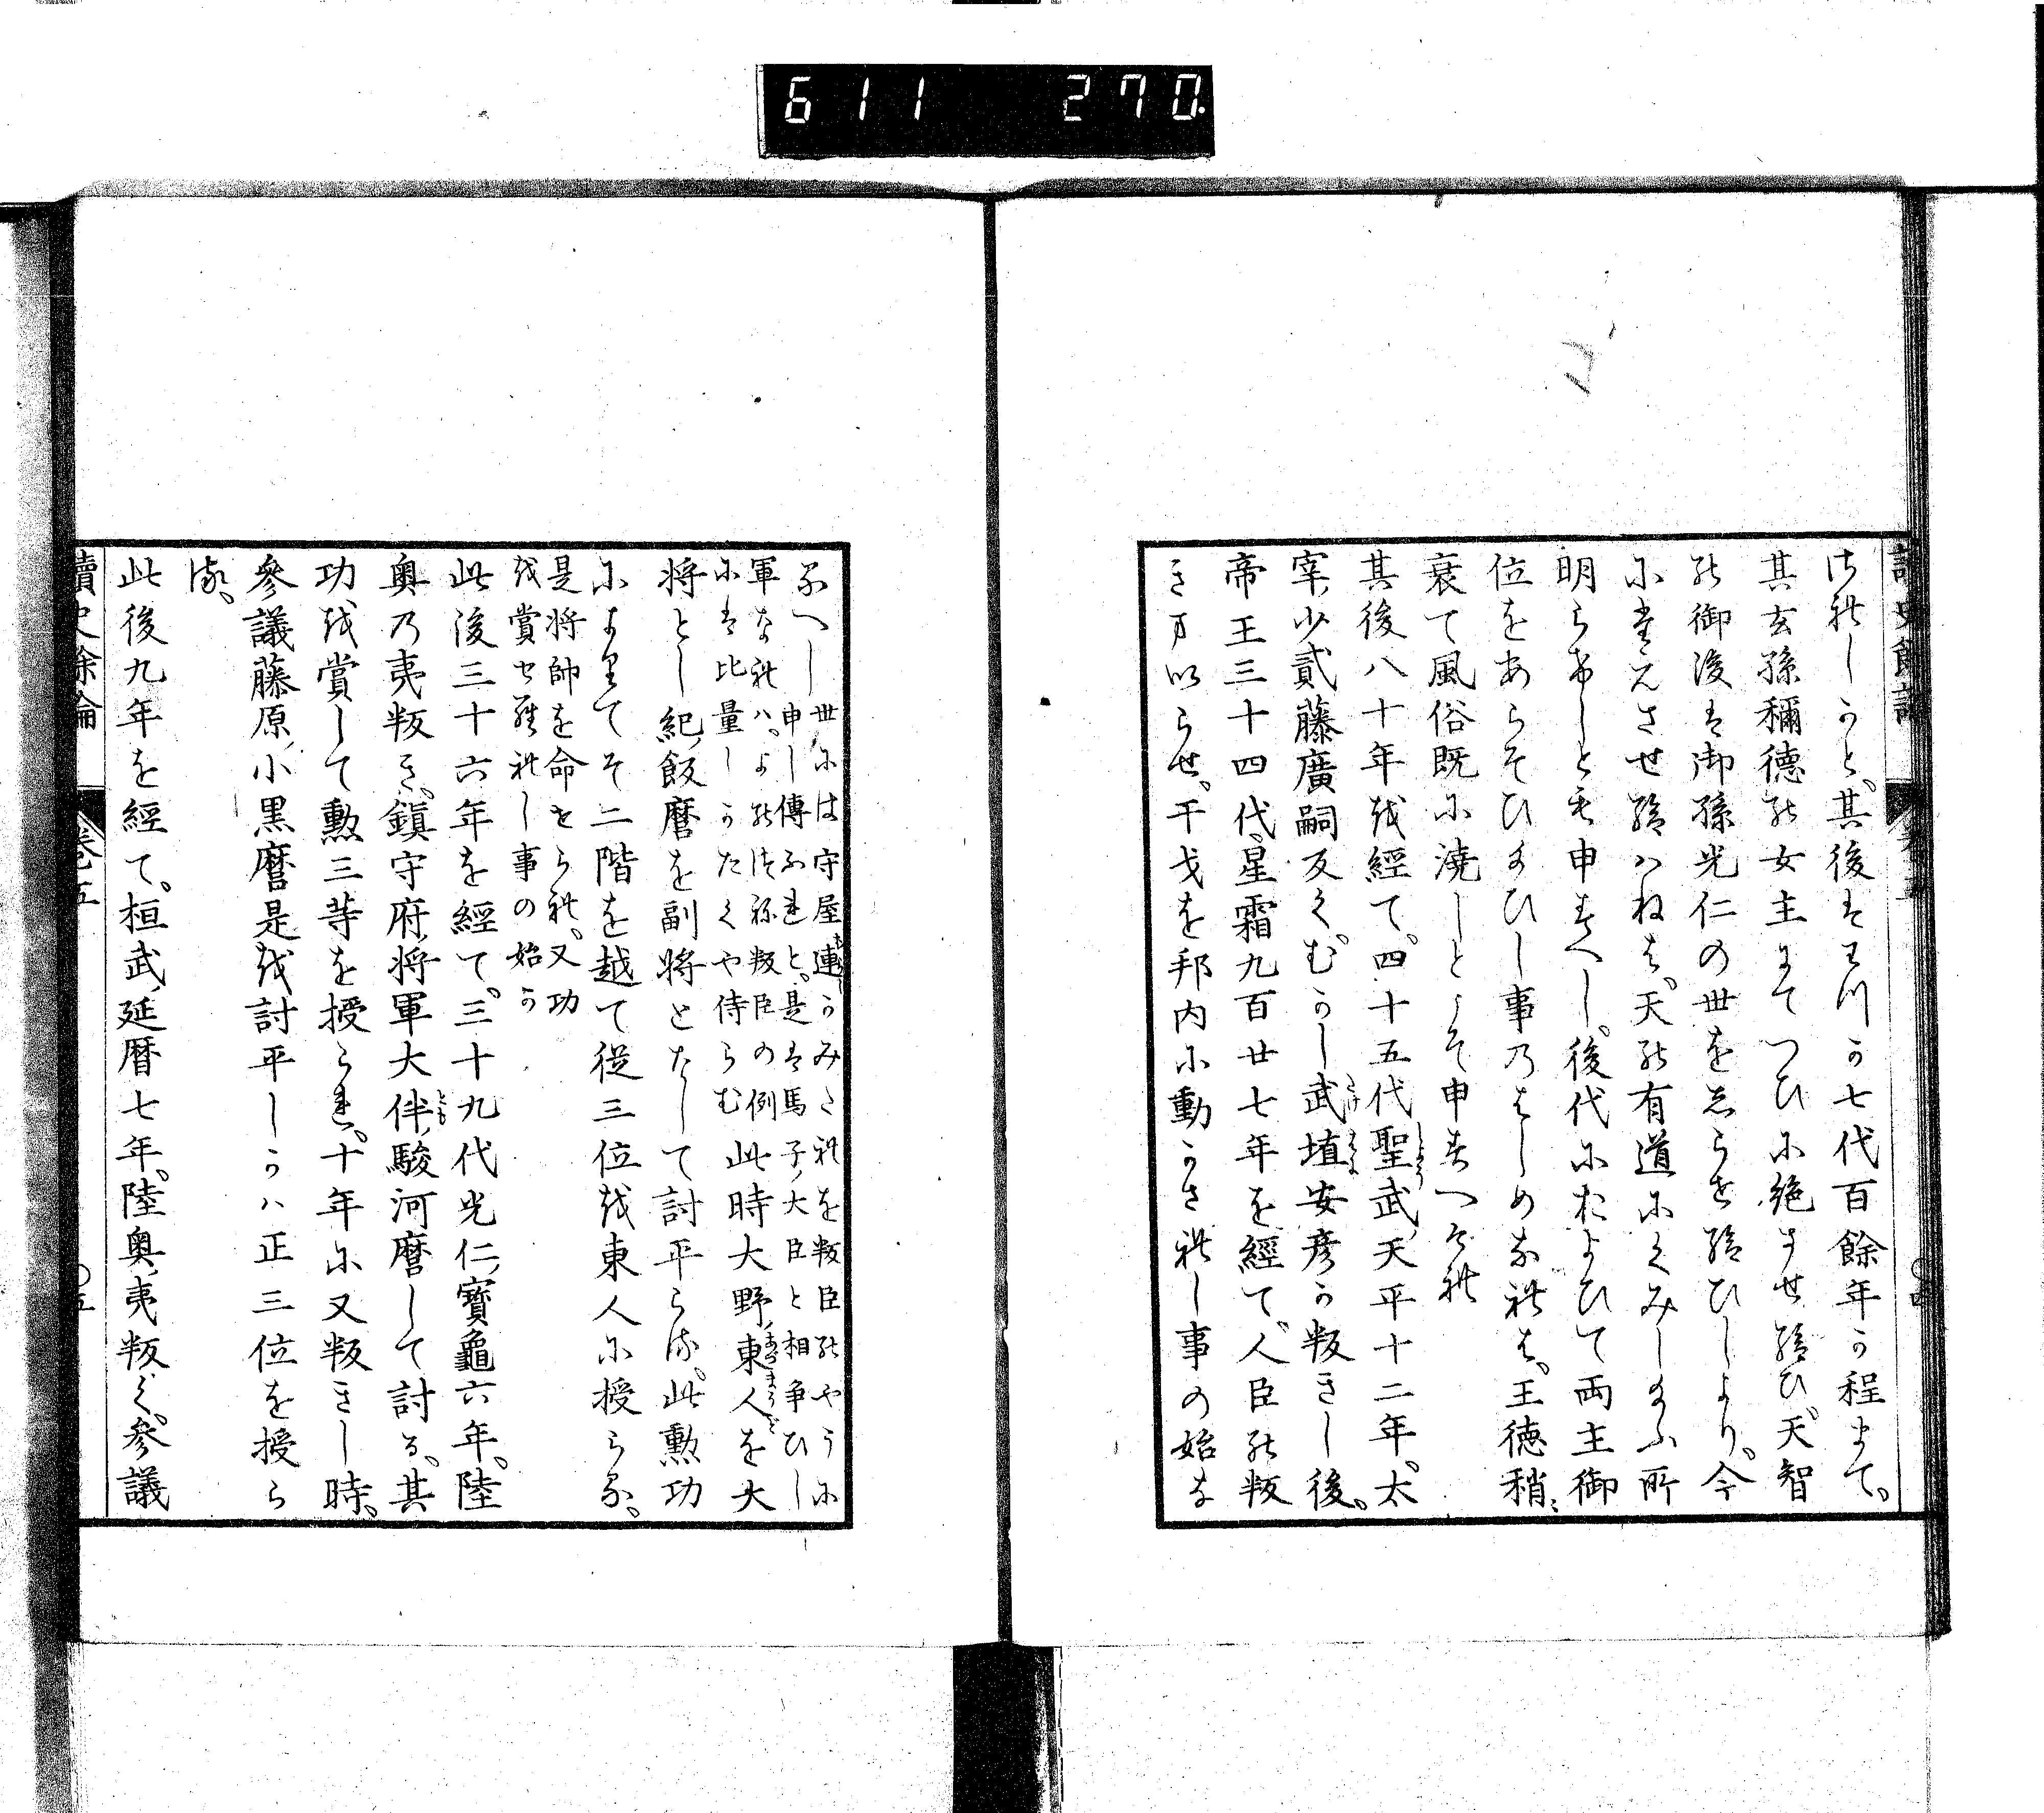 611 270
讀史餘論
され〻しかと、其後はわつか七代百餘年か程まて。
其玄孫稱德の女主まてつひに絶させ給ひ、天智
の御後は御孫光仁の世をしらせ給ひしより。今
に至るまてたえさせ給はねは、天の有道にくみしたまふ所
明らけしとも申すへし。後代におよひて両主御
位をあらそひ給ひし事のはしめなれは。王徳稍〻
衰て風俗既に澆しとこそ申すへけれ
其後八十年を經て。四十五代聖武、天平十二年。太
宰、少貳藤廣嗣反く。むかし武埴安彦か叛きし後。
帝王三十四代、星霜九百廿七年を經て、人臣の叛
きまいらせ。干戈を邦内に動かされし事の始な
るへし世には守屋連かみたれを叛臣のやうに
申し傳ふれと。是は馬子、大臣と相争ひし
軍なれハ。よのつね叛臣の例
には比量しかたくや侍らむ此時大野、東人を大
将とし紀、飯麿を副將となして討平らる。此勲功
によりてそ二階を越て従三位を東人に授らる。
是将帥を命せられ。又功
を賞せられし事の始か
此後三十六年を經て。三十九代光仁、寶龜六年。陸
奥乃夷叛き。鎮守府、将軍大伴、駿河麿して討る、其
功を賞して勲三等を授られ。十年に又叛きし時。
參議藤原、小黒麿是を討平しかハ正三位を授ら
る。
此後九年を經て。桓武、延暦七年。陸奥、夷叛く。參議
讀史餘論
卷五
〇五